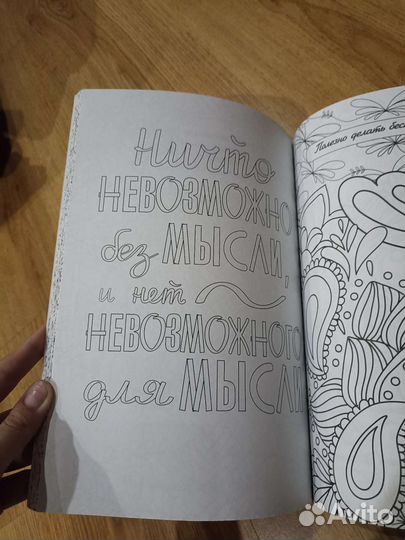 Ничто
НЕВОЗМОЖНО
без МЫСЛИ,
и нет
НЕВОЗМОЖНОГО
для МЫСЛИ
Полезно делать
Avito